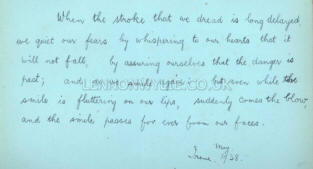 When the stroke that we dread is long delayed,
we quiet our fears by whispering to our hearts that it
will not fall, by assuring ourselves that the danger is
past; and, we smile again; but even while the
smile is fluttering on our lips, suddenly comes the blow,
and the smile passes for ever from our faces.
May
1938.
LENNONWYLIE.CO.UK